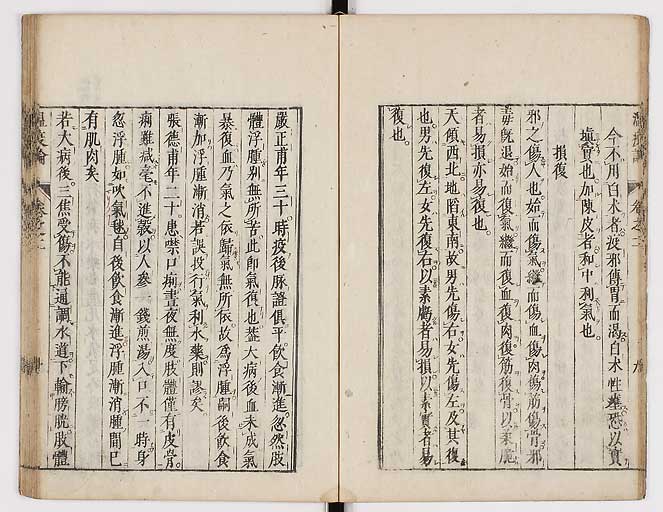 今不用白朮者疫邪傳胃而渴白朮性壅恐以實
填實也加陳皮者和中利氣也
損復
邪之傷人也始而傷氣繼而傷血傷肉傷筋傷骨邪
毒既退始而復氣繼而復血復肉復筋復骨以柔脆
者易損亦易復也
天傾西北地陷東南故男先傷右女先傷左及其復
也男先復左女先復右以素虧者易損以素實者易
復也
嚴正甫年三十時疫後脉證俱平飲食漸進忽然肢
體浮腫別無所苦此即氣復也蓋大病後血未成氣
暴復血乃氣之依歸氣無所依故為浮腫嗣後飲食
漸加浮腫漸消若誤投行氣利水藥則謬矣
張德甫年二十患噤口痢晝夜無度肢體僅有皮骨
痢雖减毫不進穀以人參一錢煎湯入口不一時身
忽浮腫如吹氣毬自後飲食漸進浮腫漸消腫間已
有肌肉矣
若大病後三焦受傷不能通調水道下輸膀胱肢體
溫疫論 卷之二